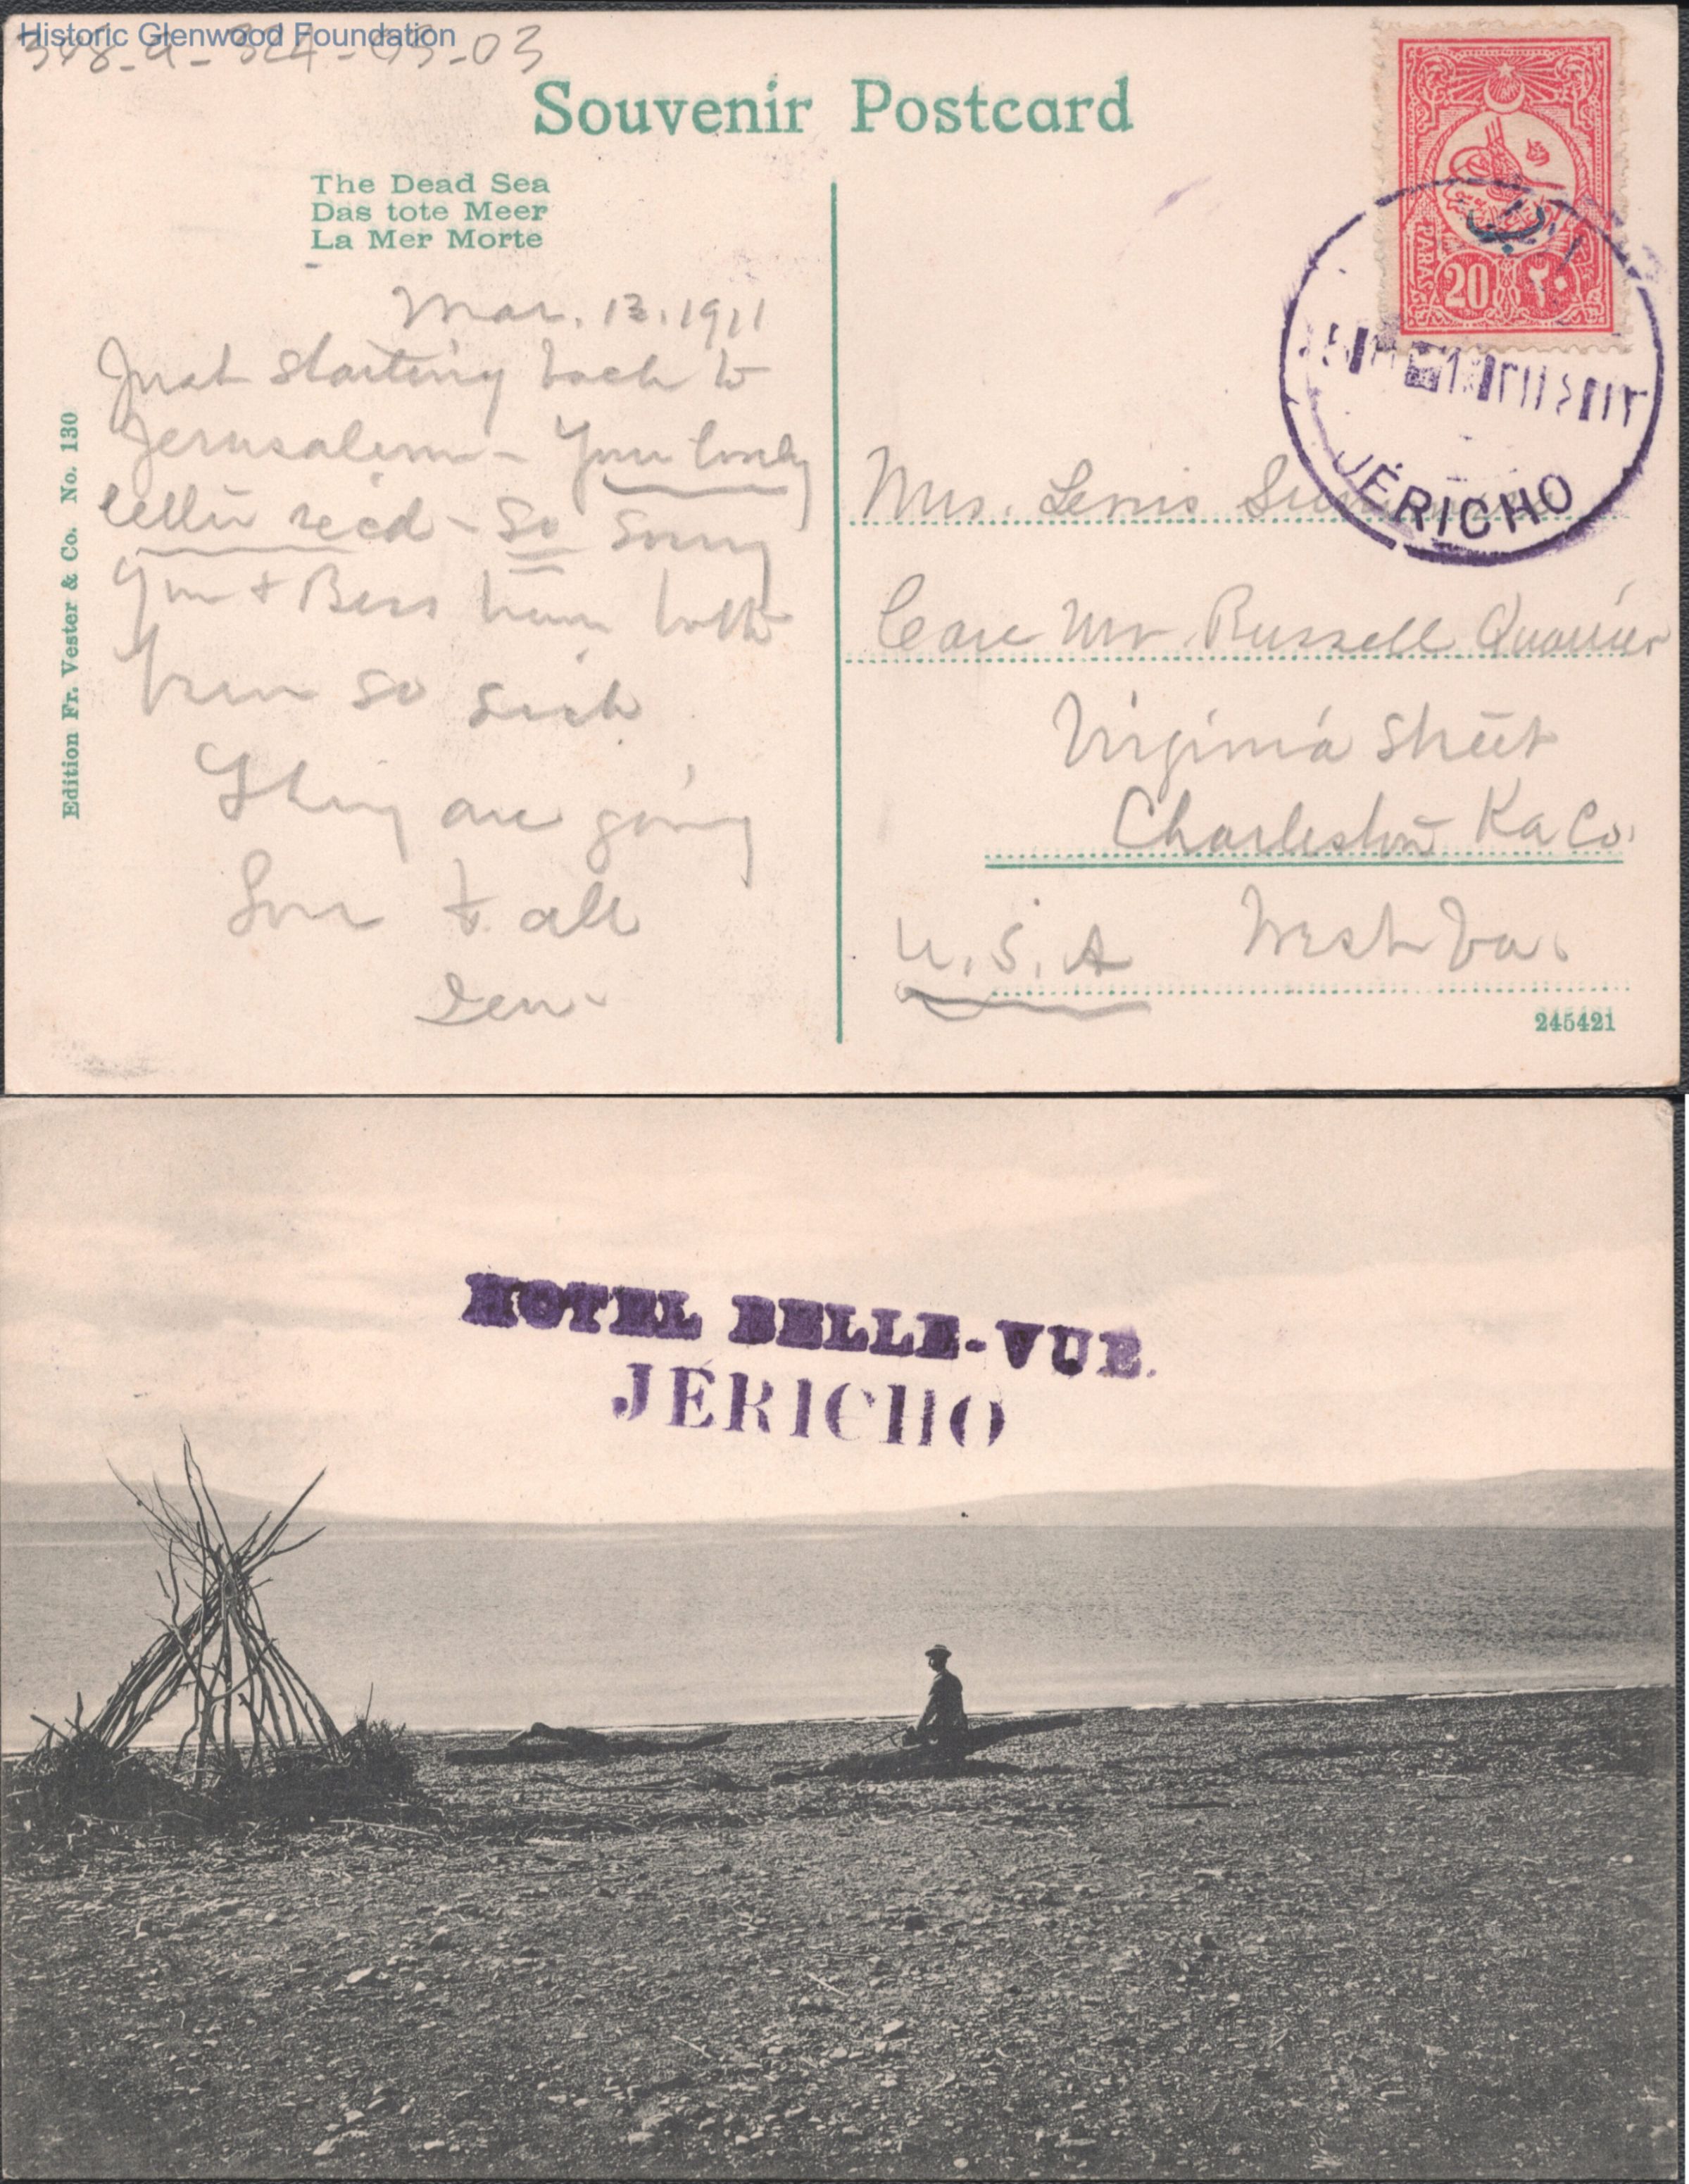 Historic Glenwood Foundation
348-a-324-03-03
Souvenir Postcard
The Dead Sea
Das tote Meer
La Mer Morte
Edition Fr. Vester & Co. No. 130
Mar. 13. 1911
Just starting back to
Jerusalem - Your lovely
letter rec'd - So sorry
you + Bess have both
been so sick
They are going
Love to all
Mrs. Lewis
Care Mr. Russell Quarrier
Virginia Street
Charleston Ka Co.
West Va.
U.S.A
245421
PARAS
20 ٢٠
JÉRICHO
HOTEL BELLE-VUE.
JÉRICHO